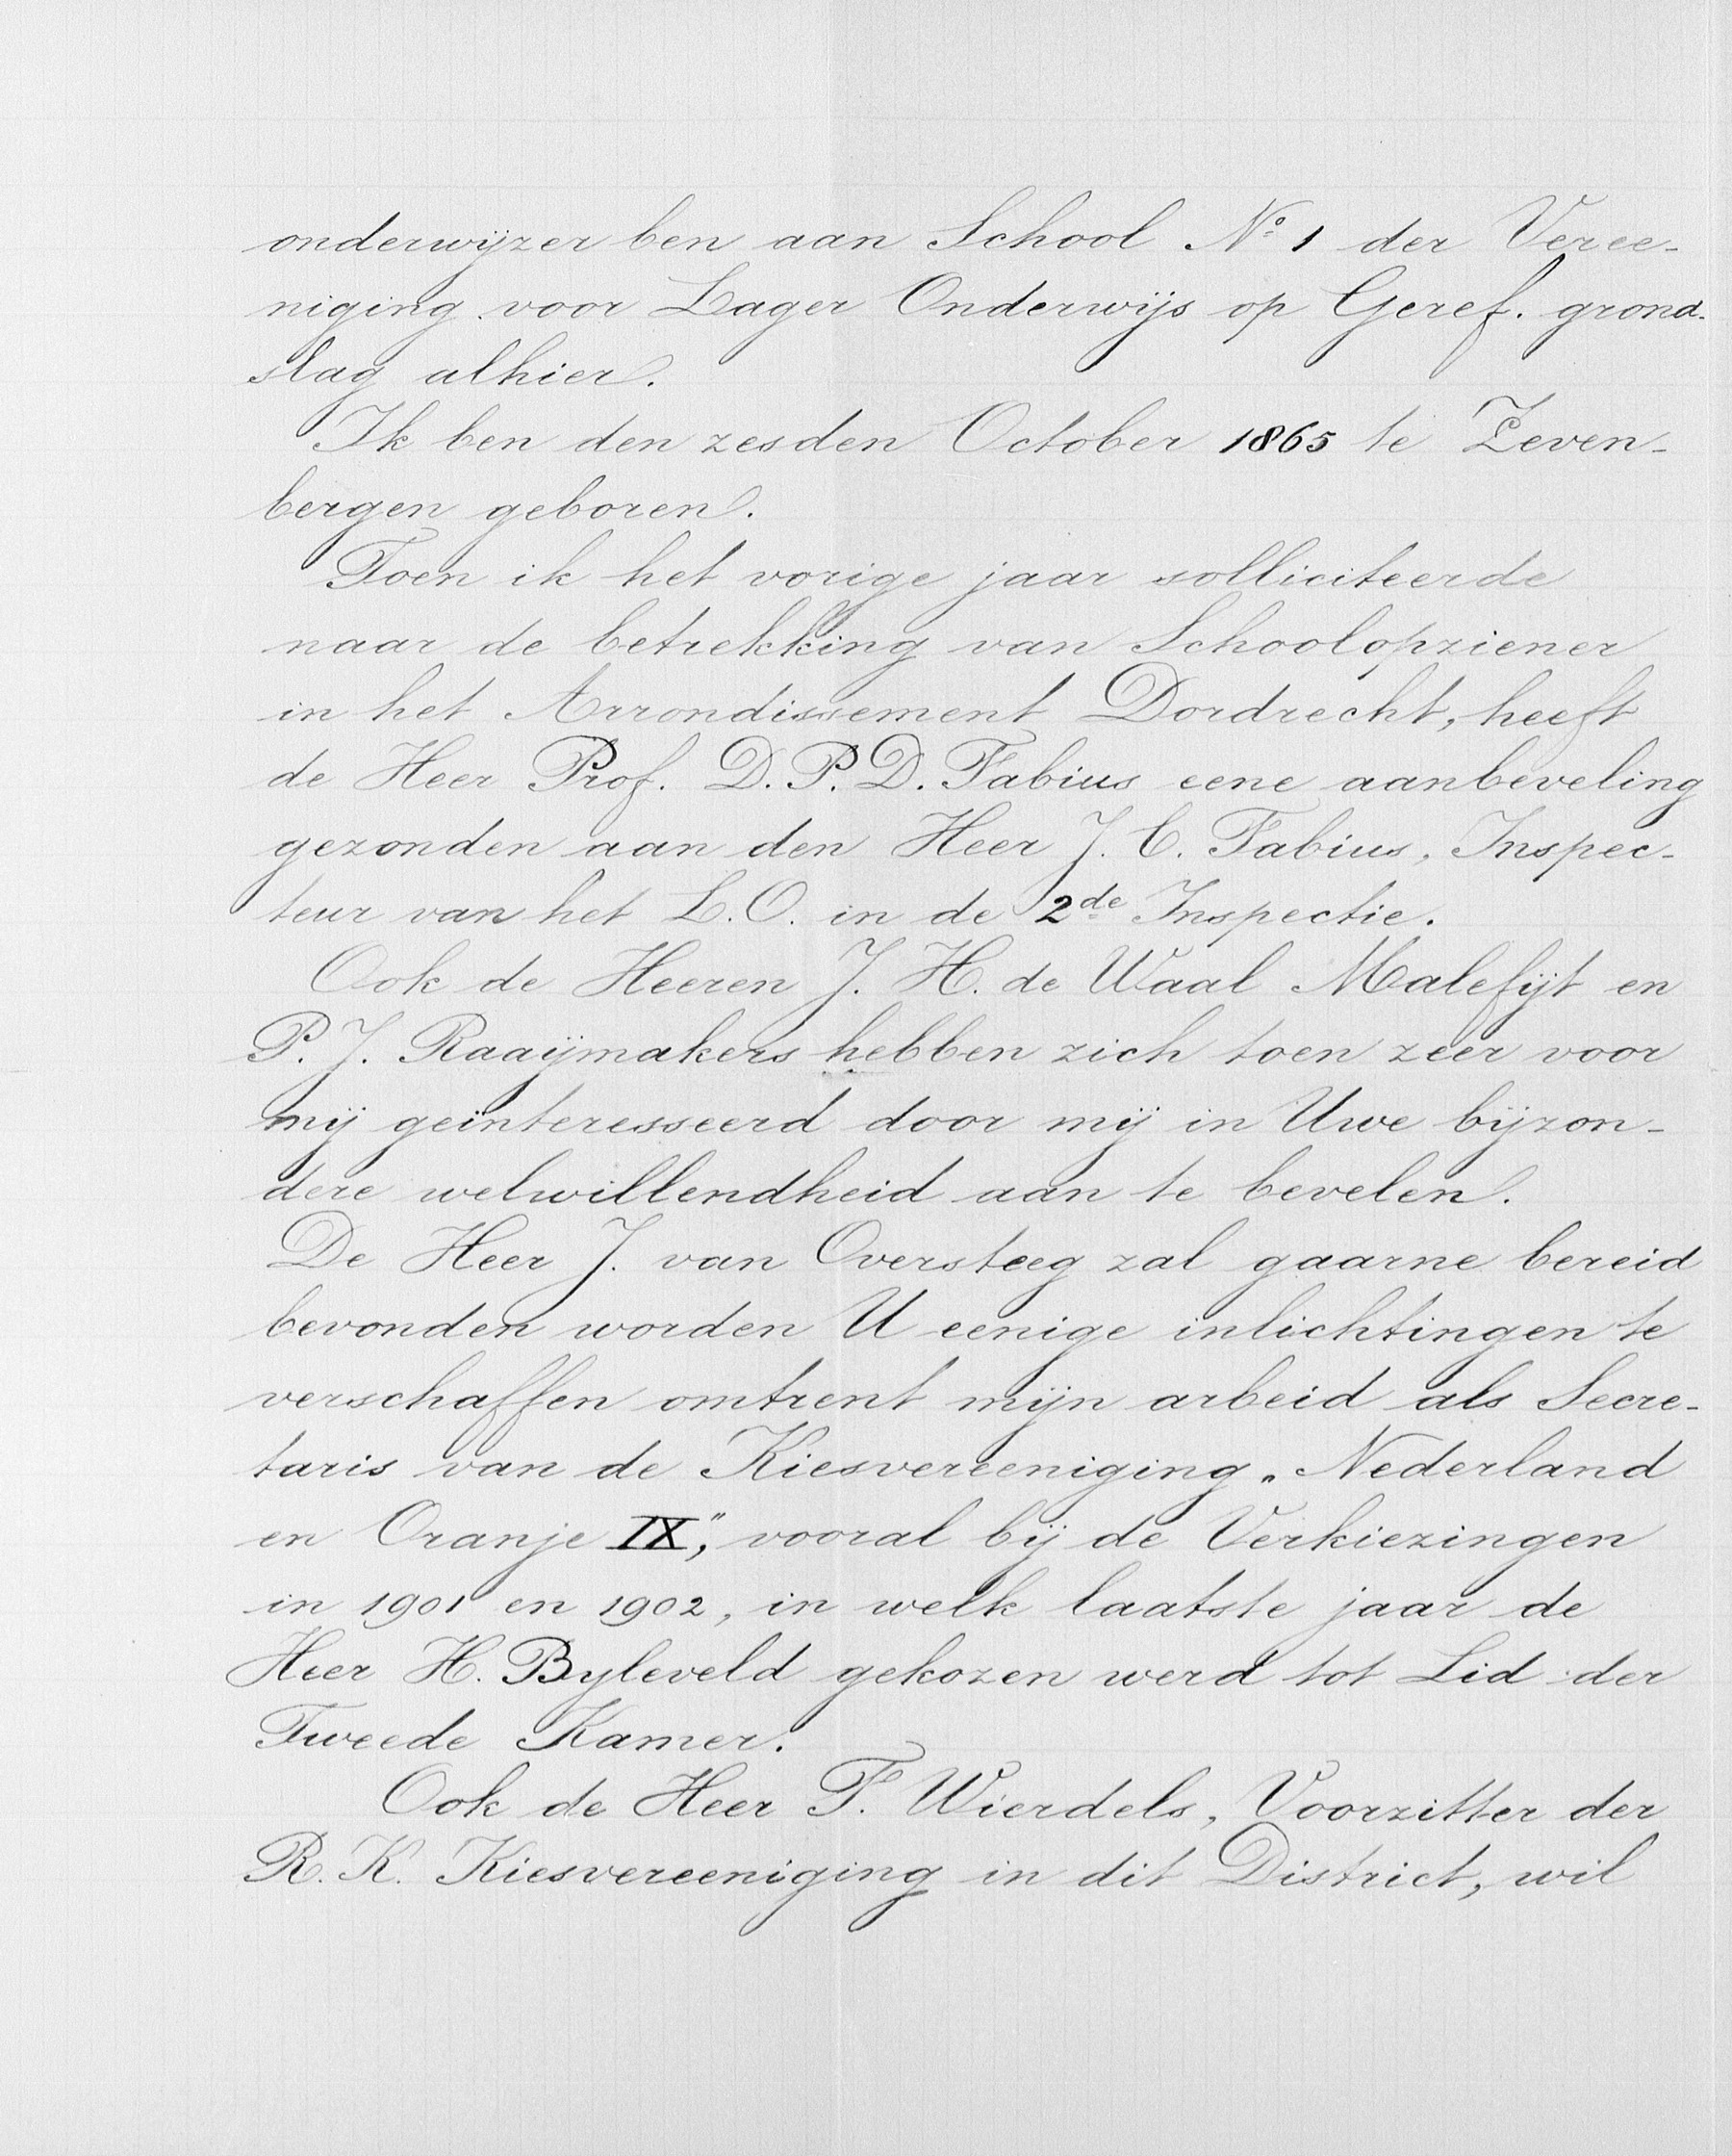 onderwijzer ben aan School No. 1 der Veree-
niging voor Lager Onderwijs op Geref. grond-
slag alhier.
Ik ben den zesden October 1865 te Zeven-
bergen geboren.
Toen ik het vorige jaar solliciteerde
naar de betrekking van Schoolopziener
in het Arrondissement Dordrecht, heeft
de Heer Prof. D. P. D. Fabius eene aanbeveling
gezonden aan den Heer J. C. Fabius, Inspec-
teur van het L. O. in de 2de Inspectie.
Ook de Heeren J. H. de Waal Malefijt en
P. J. Raaijmakers hebben zich toen zeer voor
mij geïnteresseerd door mij in Uwe bijzon-
dere welwillendheid aan te bevelen.
De Heer J. van Oversteeg zal gaarne bereid
bevonden worden U eenige inlichtingen te
verschaffen omtrent mijn arbeid als Secre-
taris van de Kiesvereeniging „Nederland
en Oranje IX", vooral bij de Verkiezingen
in 1901 en 1902, in welk laatste jaar de
Heer H. Byleveld gekozen werd tot Lid der
Tweede Kamer.
Ook de Heer F. Wierdels, Voorzitter der
R. K. Kiesvereeniging in dit District, wil